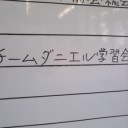 チームダニエル学習会